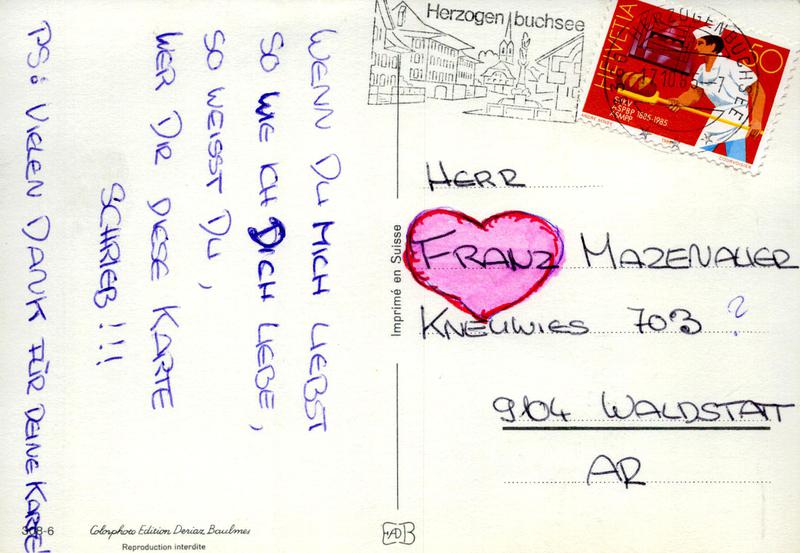 WENN DU MICH LIEBST
SO WIE ICH DICH LIEBE,
SO WEISST DU,
WER DIR DIESE KARTE
SCHRIEB!!!
PS: VIELEN DANK FÜR DEINE KARTE!
Herzogenbuchsee
HELVETIA
50
HERZOGENBUCHSEE
17.10.85-7
SBKV
ASPBP 1685-1985
ASMPP
COURVOISIER
HERR
FRANZ MAZENAUER
KNEUWIES 703 ?
9104 WALDSTATT
AR
Imprimé en Suisse
Colorphoto Edition Deriaz Baulmes
Reproduction interdite